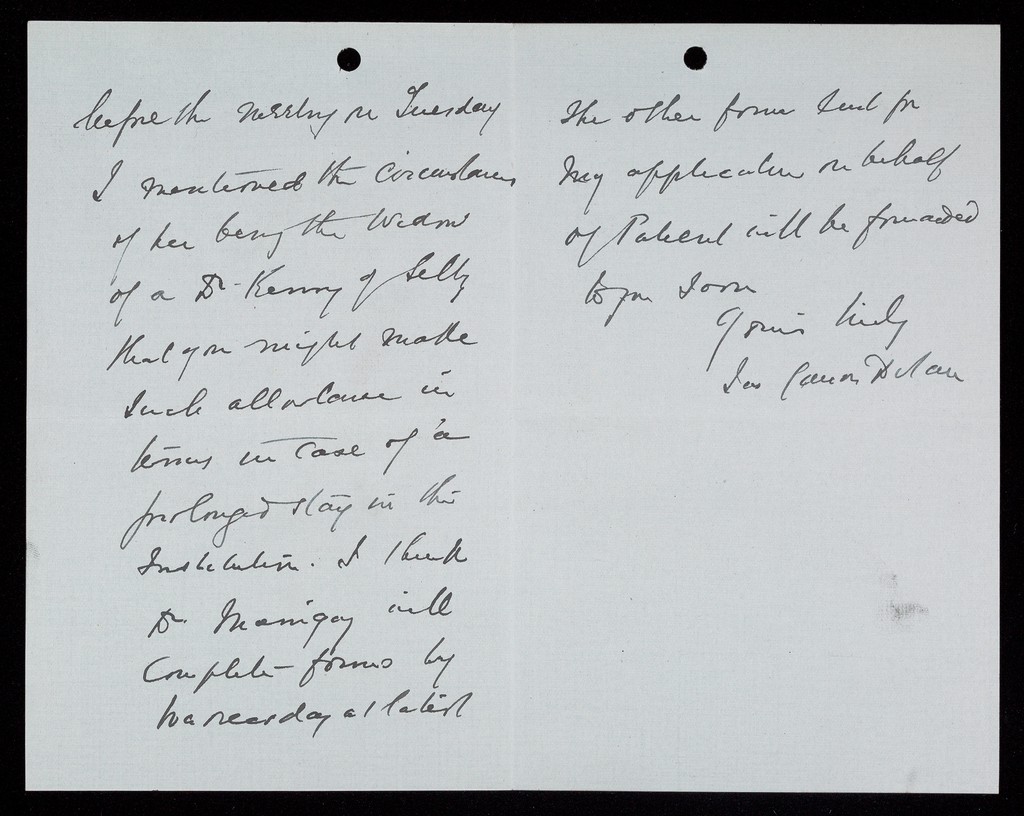 before the meeting on Tuesday
I mentioned the circumstances
of her being the Widow
of a Dr. Kenny of Selby
that you might make
such allowance in
terms in case of a
prolonged stay in the
Institution. I think
Dr will
Complete forms by
Wednesday at latest
The other form sent for
my application on behalf
of Patient will be forwarded
to you soon
Yours truly
Jas Canon